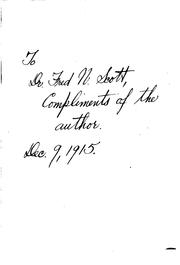 To
Dr. Fred N. Scott,
Compliments of the
author.
Dec. 9, 1915.